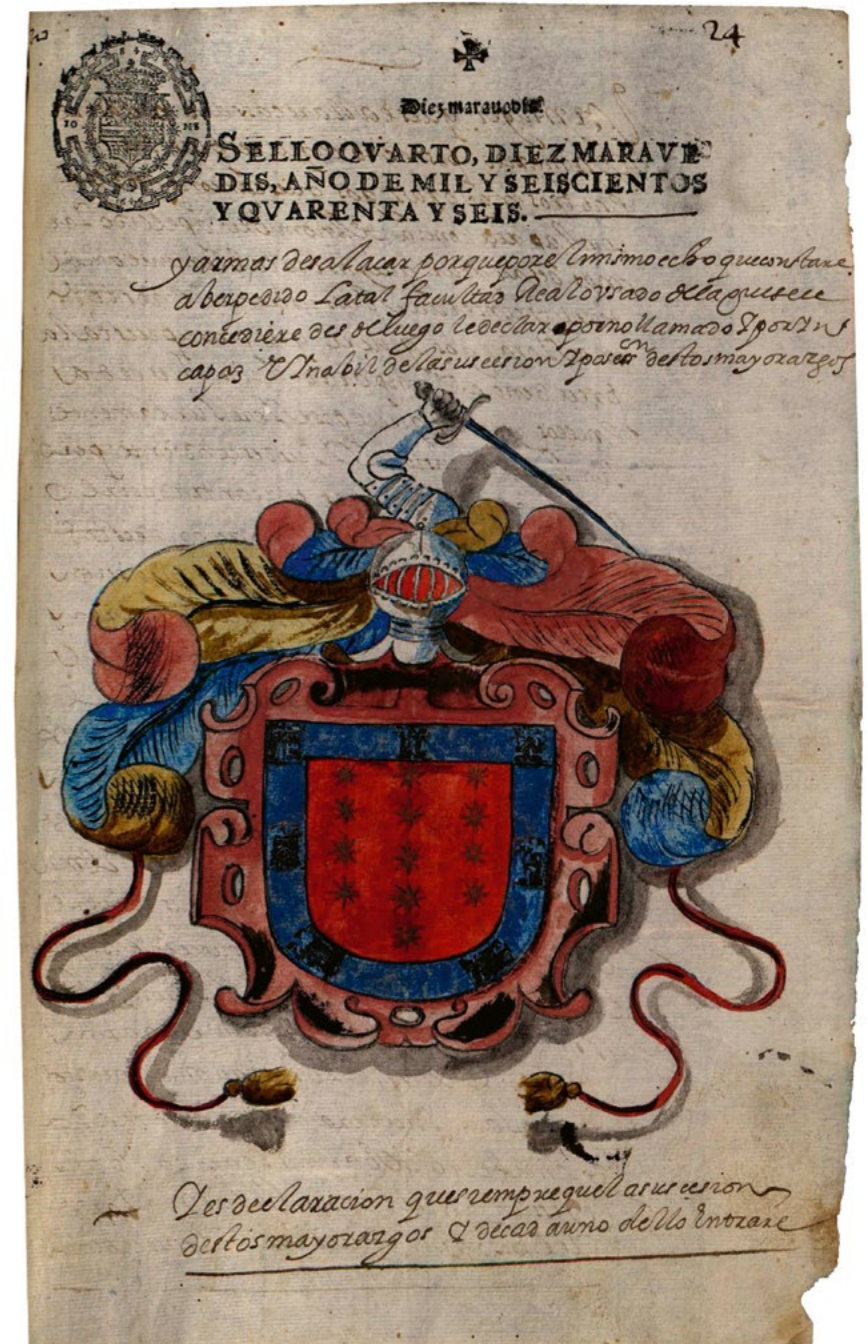 24
Diez marauedis
SELLO QVARTO, DIEZ MARAVE
DIS, AÑO DE MIL Y SEISCIENTOS
Y QVARENTA Y SEIS.
y armas de salacar porque por el mismo echo que constare
aber pedido La tal facultad Real o vsado della que se le
concediere des de luego le declaro por no llamado Y por Yn
capaz Y Ynabil de la suscesion Y poseer destos mayorazgos
Y es declaracion que siempre que la suscesion
destos mayorazgos Y de cada uno dello Entrare